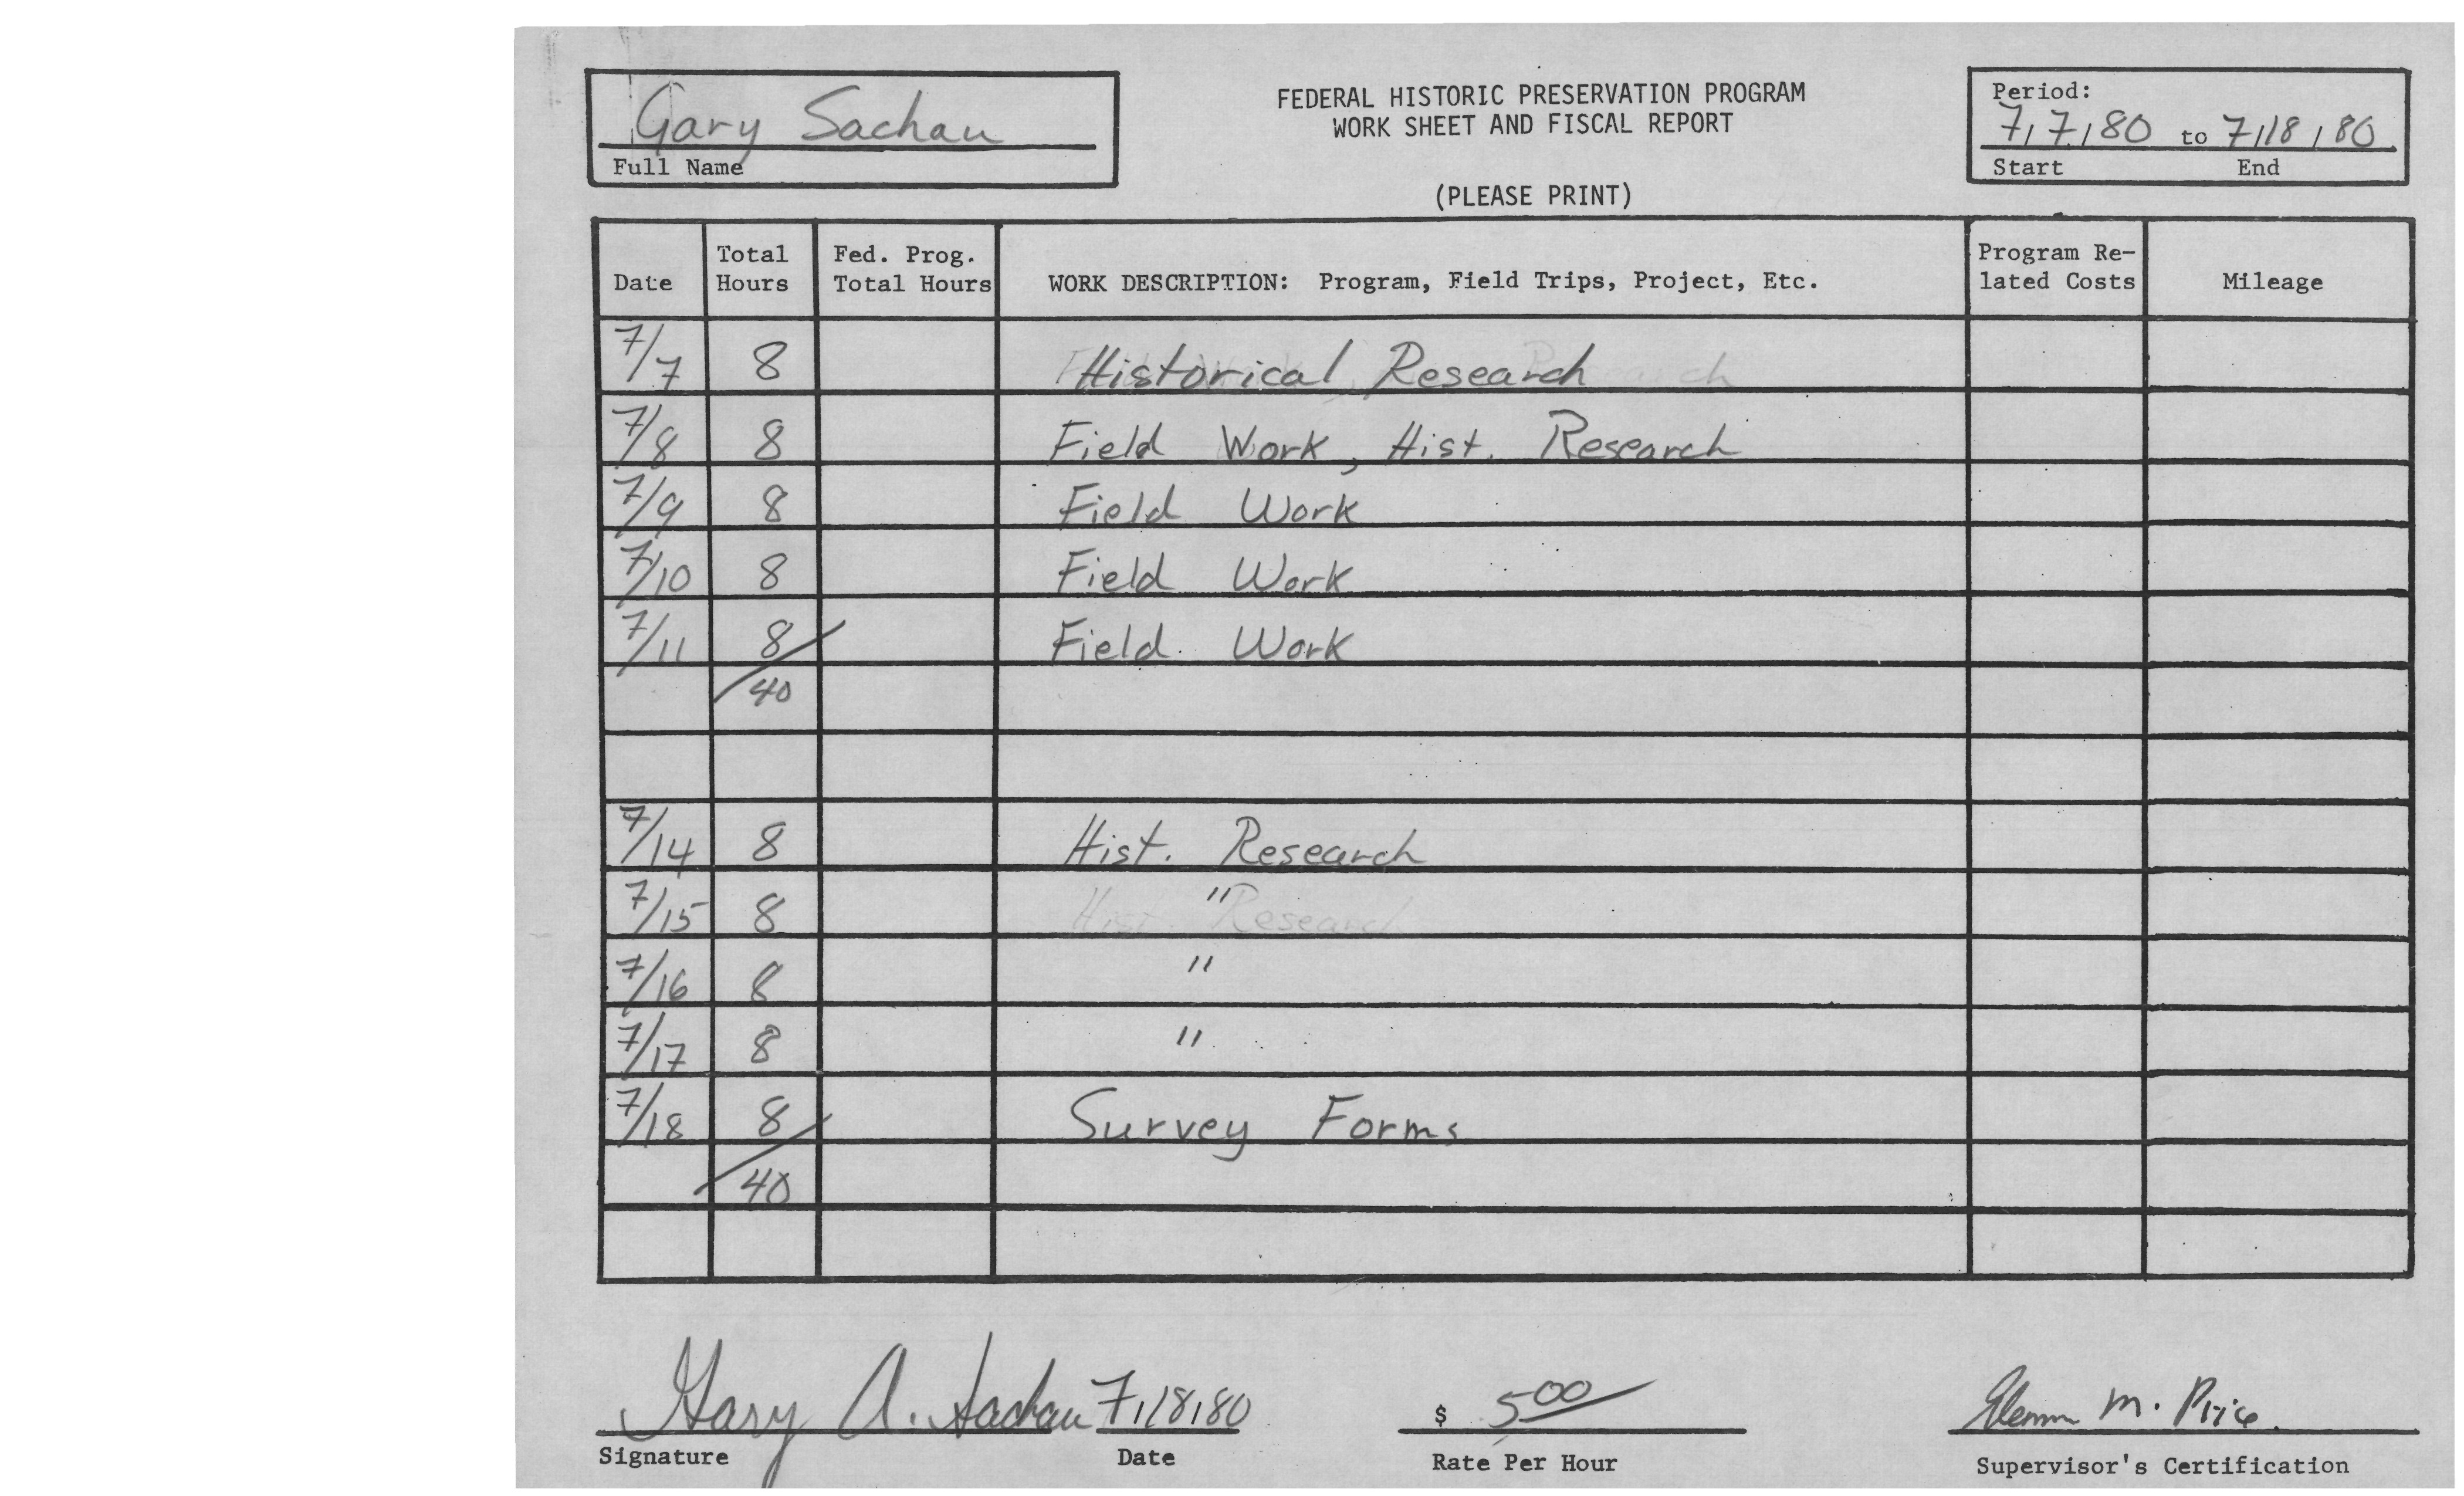 Gary Sachau
Full Name
FEDERAL HISTORIC PRESERVATION PROGRAM
WORK SHEET AND FISCAL REPORT
(PLEASE PRINT)
Period:
7/7/80 to 7/18/80
Start End
Date Total Hours Fed. Prog. Total Hours WORK DESCRIPTION: Program, Field Trips, Project, Etc. Program Re- lated Costs Mileage
7/7 8 Historical Research
7/8 8 Field Work, Hist. Research
7/9 8 Field Work
7/10 8 Field Work
7/11 8 Field Work
40
7/14 8 Hist. Research
7/15 8 "
7/16 8 "
7/17 8 "
7/18 8 Survey Forms
40
Gary A. Sachau 7/18/80 $ 5.00 Glenn M. Price
Signature Date Rate Per Hour Supervisor's Certification